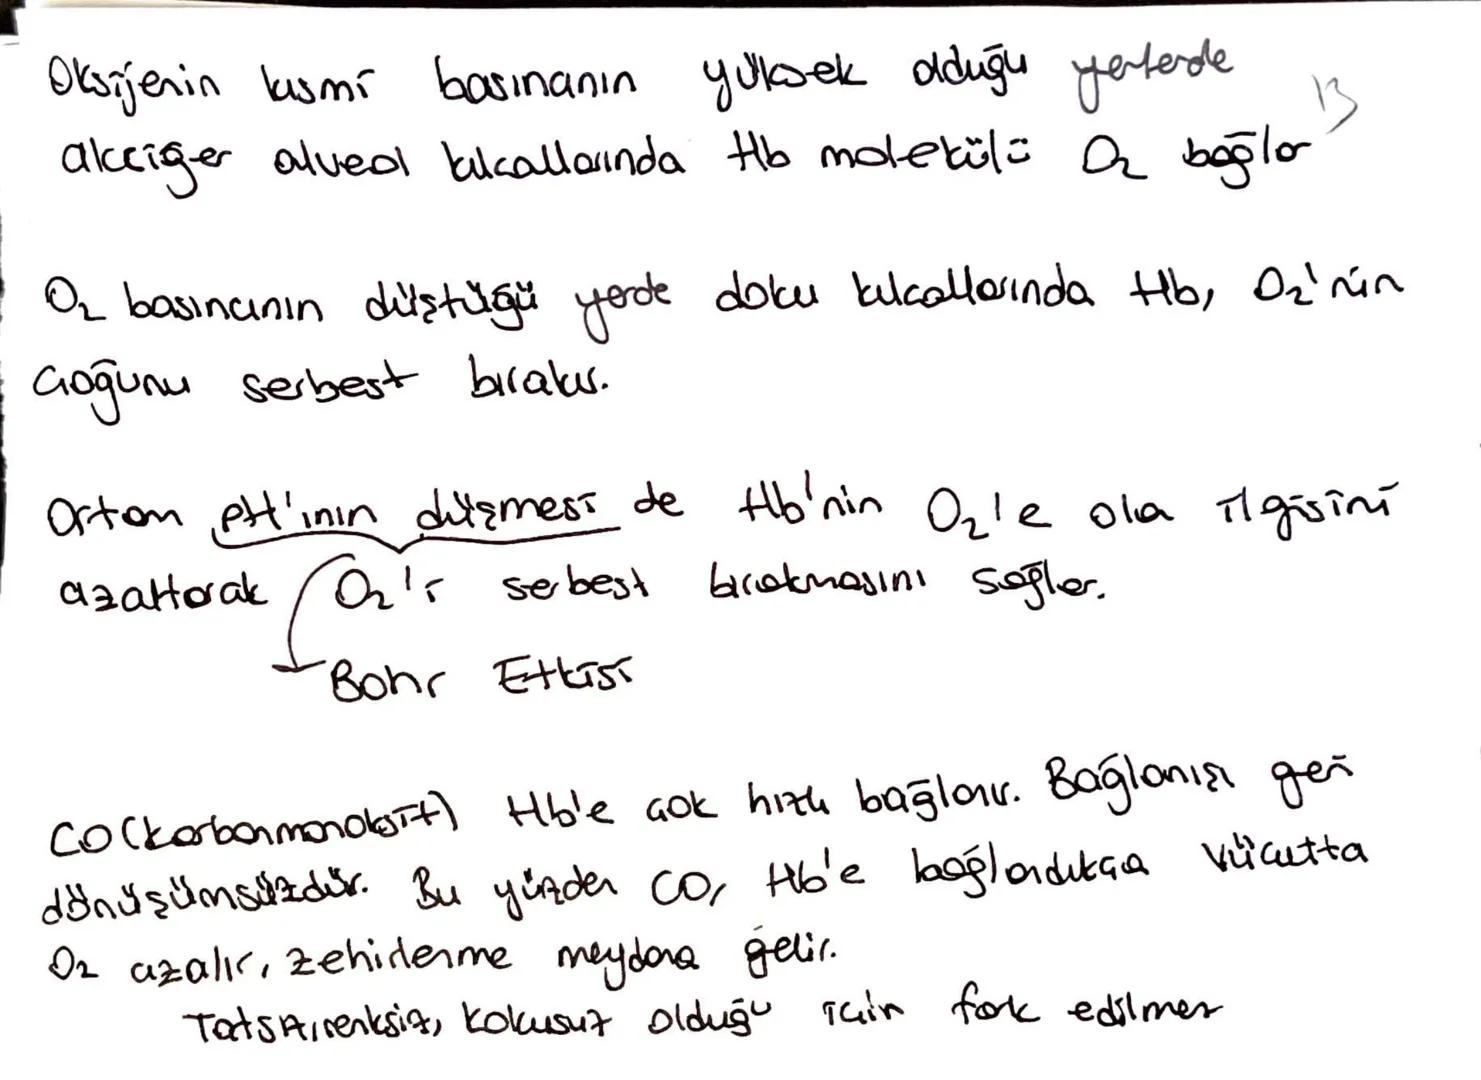 Oksijenin kısmi basınanın yüksek olduğu yerlerde
13
akciğer alveol kılcallarında Hb molekülü O₂ bağlar
O₂ basıncının düştüğü yerde doku kılcallarında Hb, O₂'nin
çoğunu serbest bırakır.
Ortam pH'ının düşmesi de Hb'nin O₂'e ola ilgisini
azaltarak O₂'i serbest bırakmasını sağlar.
Bohr Etkisi
CO (karbonmonoksit) Hb'e çok hızlı bağlanır. Bağlanışı geri
dönüşümsüzdür. Bu yüzden CO, Hb'e bağlandıkça vücutta
O₂ azalır, zehirlenme meydana gelir.
Tatsız, renksiz, kokusuz olduğu için fark edilmez